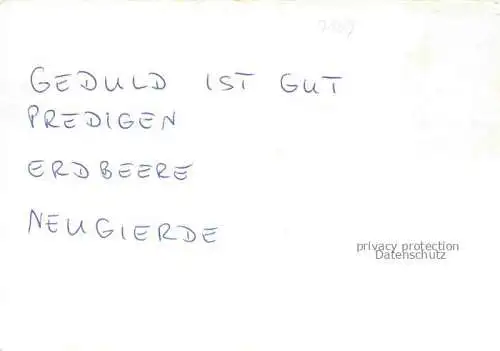 GEDULD IST GUT
PREDIGEN
ERDBEERE
NEUGIERDE
privacy protection
Datenschutz